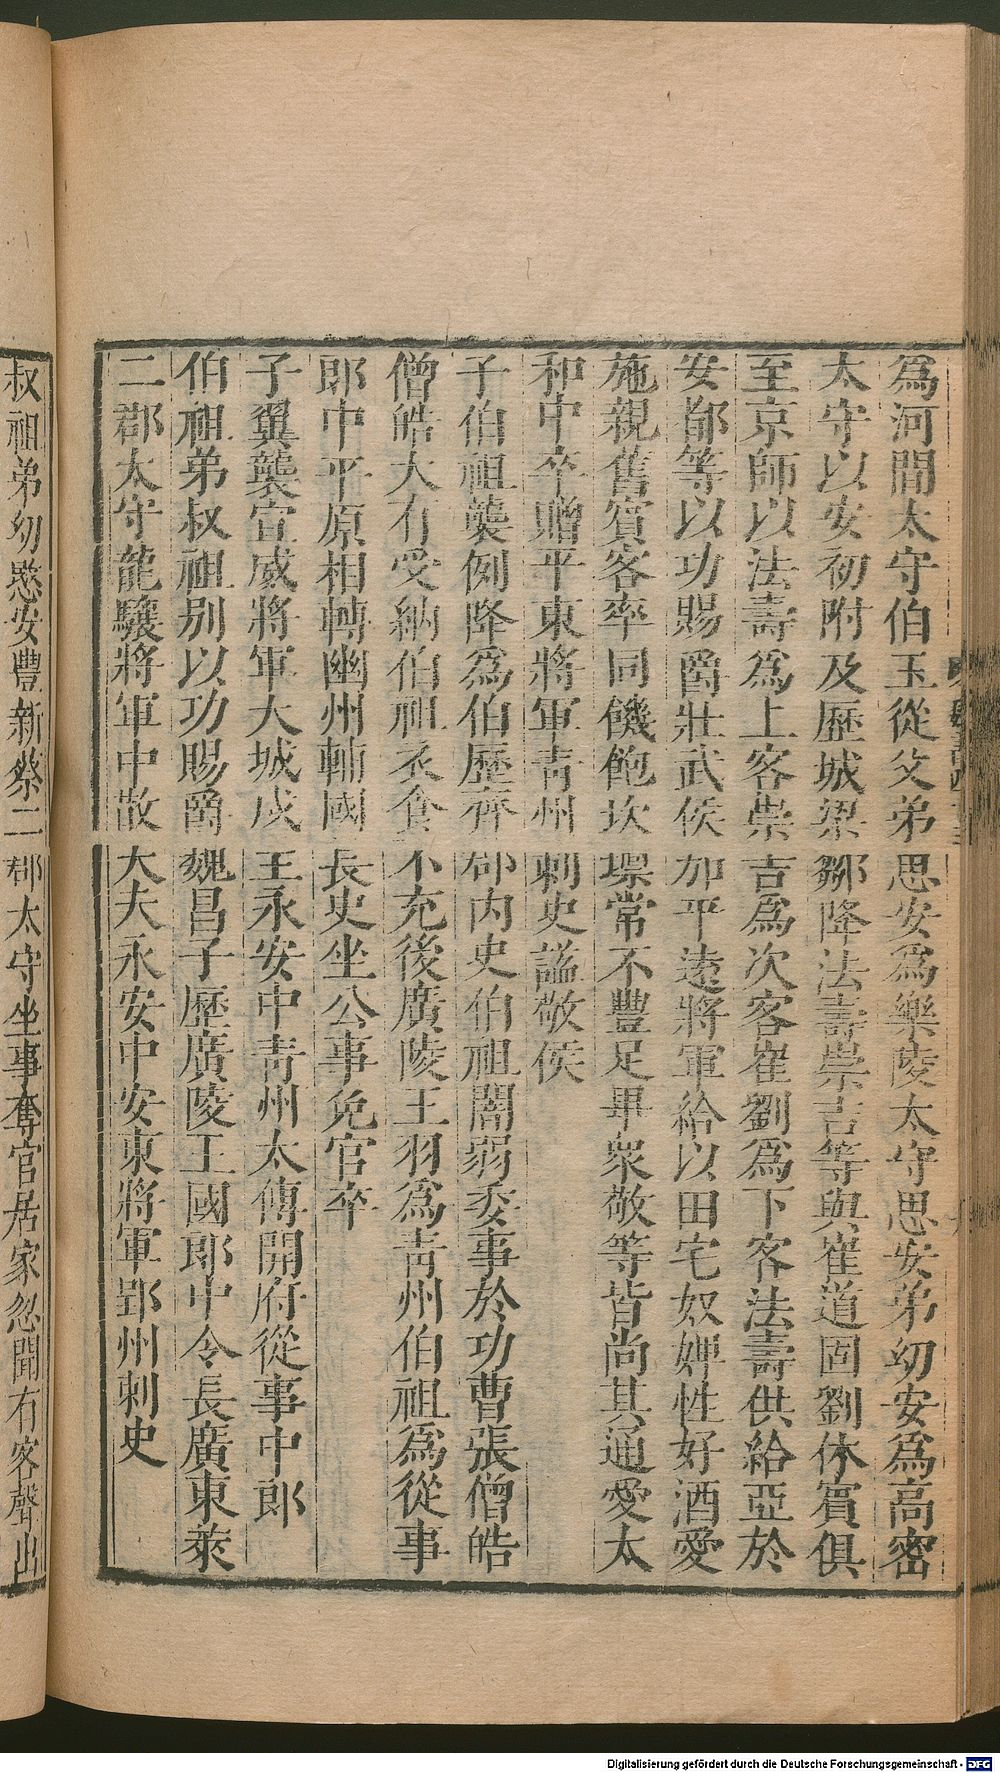 為河間太守伯玉從父弟思安為樂陵太守思安弟幼安為高密
太守以安初附及歷城梁鄒降法壽崇吉等與崔道固劉休賓俱
至京師以法壽為上客崇吉為次客崔劉為下客法壽供給亞於
安都等以功賜爵壯武侯加平遠將軍給以田宅奴婢性好酒愛
施親舊賓客率同饑飽坎壈常不豐足畢眾敬等皆尚其通愛太
和中卒贈平東將軍青州刺史謚敬侯
子伯祖襲例降為伯歷齊郡內史伯祖闇弱委事於功曹張僧皓
僧皓大有受納伯祖衣食不充後廣陵王羽為青州伯祖為從事
郎中平原相轉幽州輔國長史坐公事免官卒
子翼襲宣威將軍大城戍主永安中青州太傅開府從事中郎
伯祖弟叔祖別以功賜爵魏昌子歷廣陵王國郎中令長廣東萊
二郡太守龍驤將軍中散大夫永安中安東將軍郢州刺史
叔祖弟幼愍安豐新蔡二郡太守坐事奪官居家忽聞有客聲出
Digitalisierung gefördert durch die Deutsche Forschungsgemeinschaft - DFG